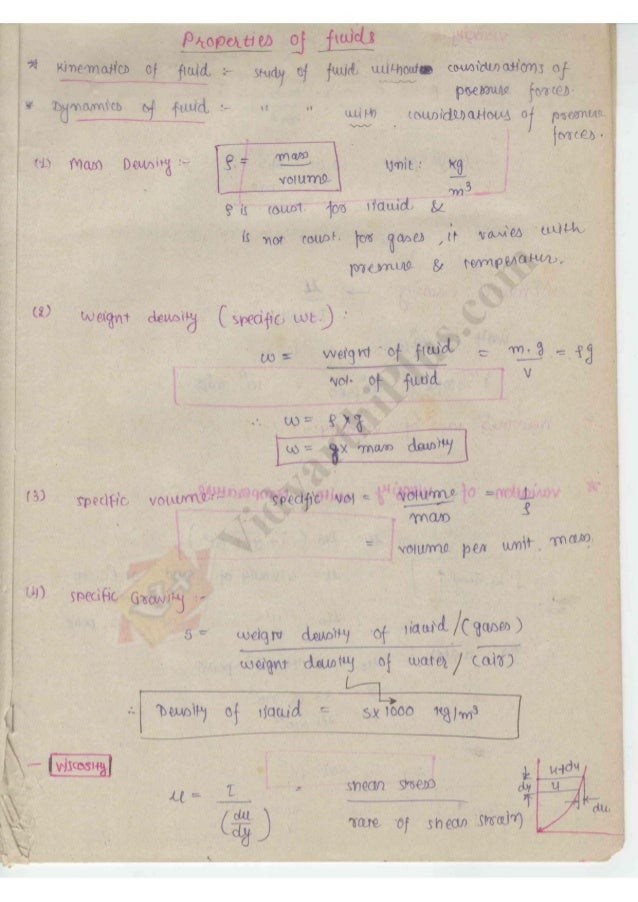 Properties of fluids
* Kinematics of fluid :- study of fluid without considerations of
pressure forces.
* Dynamics of fluid :- " " with considerations of pressure
forces.
(1) Mass Density :- ρ = mass / volume Unit : kg / m³
ρ is const. for liquid &
is not const. for gases, it varies with
pressure & temperatur.
(2) Weight density (specific wt.) :
ω = weight of fluid / vol. of fluid = m.g / v = ρg
∴ ω = ρ × g
ω = g × mass density
(3) specific volume :- specific vol = volume / mass = 1 / ρ
= volume per unit mass.
(4) specific Gravity :-
S = weight density of liquid / (gases)
weight density of water / (air)
∴ Density of liquid = S × 1000 kg/m³
- Viscosity
μ = τ / (du / dy) = shear stress / rate of shear strain
u+du
dy u
du
VidyarthiPlus.com